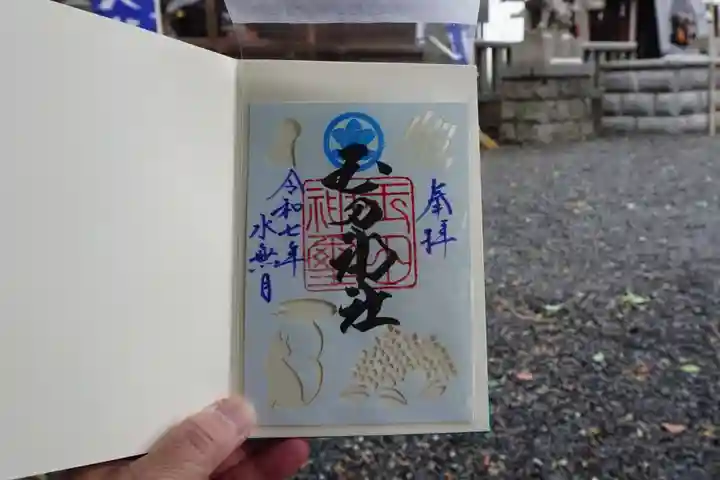 奉拝
玉田神社
令和七年
水無月